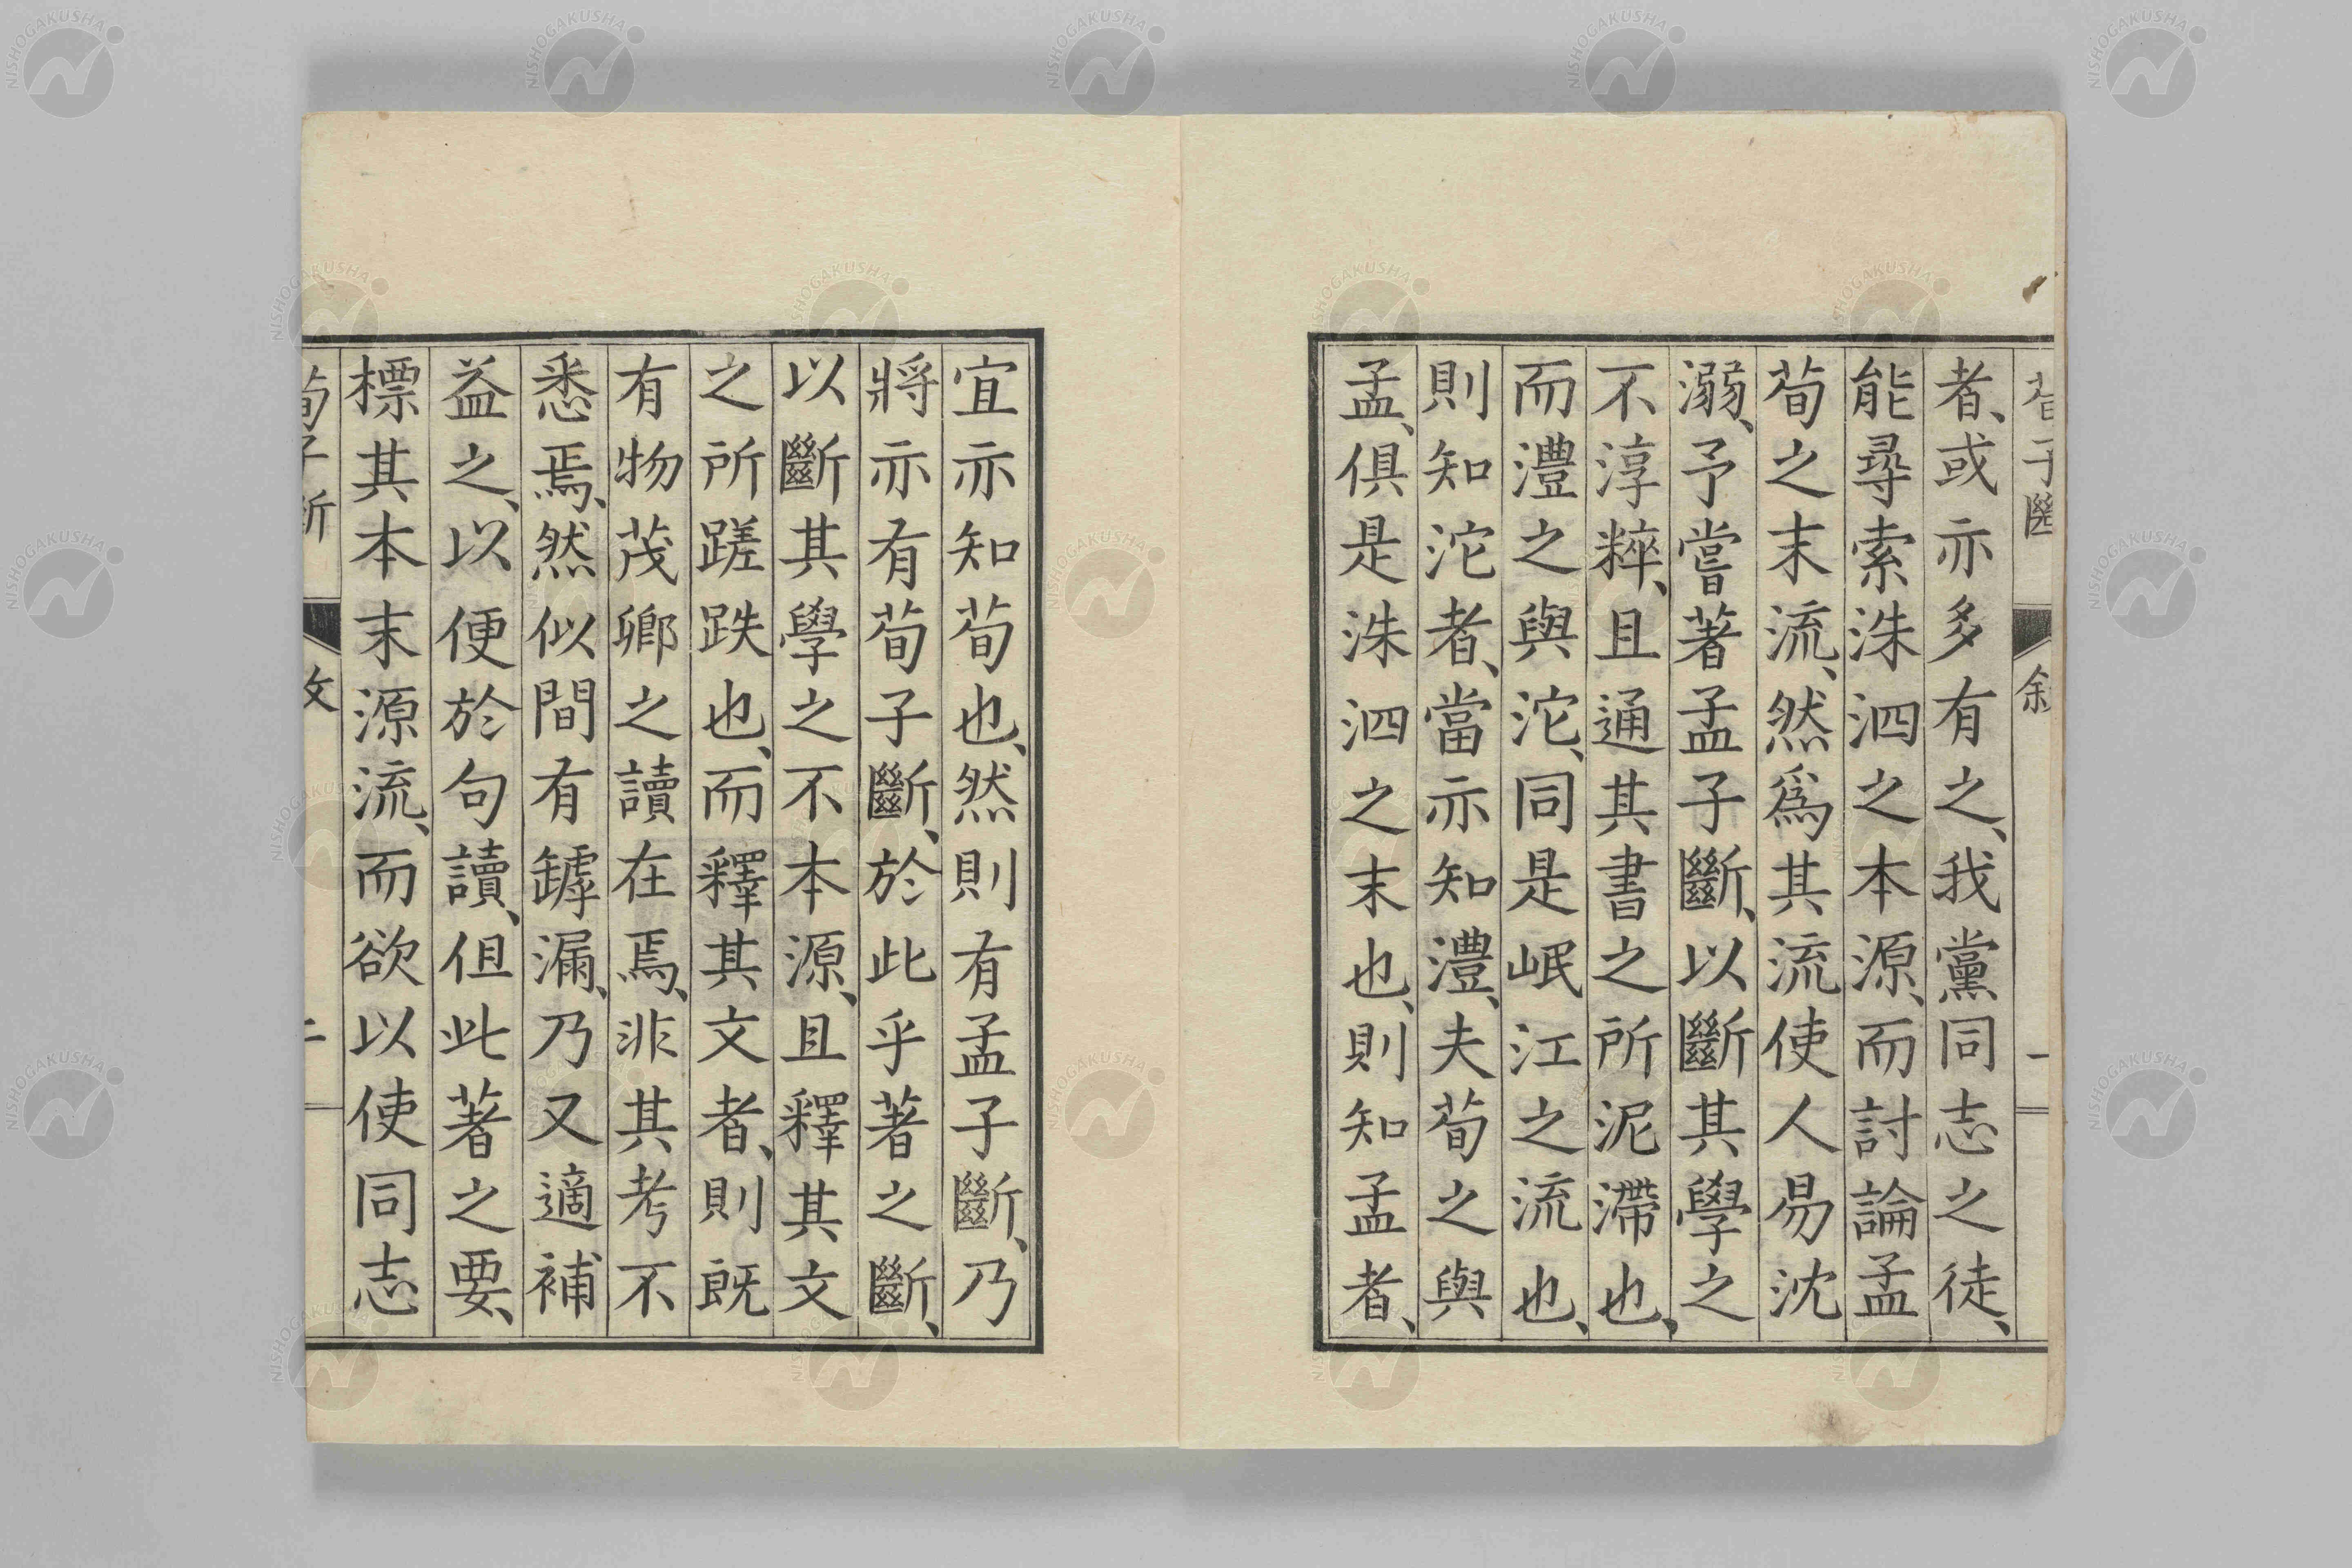 者、或亦多有之、我黨同志之徒、
能尋索洙泗之本源、而討論孟
荀之末流、然爲其流使人易沈
溺、予嘗著孟子斷、以斷其學之
不淳粹、且通其書之所泥滯也、
而澧之與沱、同是岷江之流也、
則知沱者、當亦知澧、夫荀之與
孟、俱是洙泗之末也、則知孟者、
宜亦知荀也、然則有孟子斷、乃
將亦有荀子斷、於此乎著之斷、
以斷其學之不本源、且釋其文
之所蹉跌也、而釋其文者、則既
有物茂卿之讀在焉、非其考不
悉焉、然似間有罅漏、乃又適補
益之、以便於句讀、但此著之要、
標其本末源流、而欲以使同志
NISHOGAKUSHA